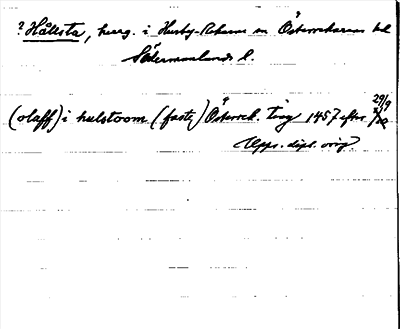 ? Hållsta, herrg. i Husby-Rekarne sn Österrekarnes hd
Södermanlands l.
(olaff) i hulstoom (faste) Österrek. ting 1457 efter 29/9
Upps. dipl. orig.